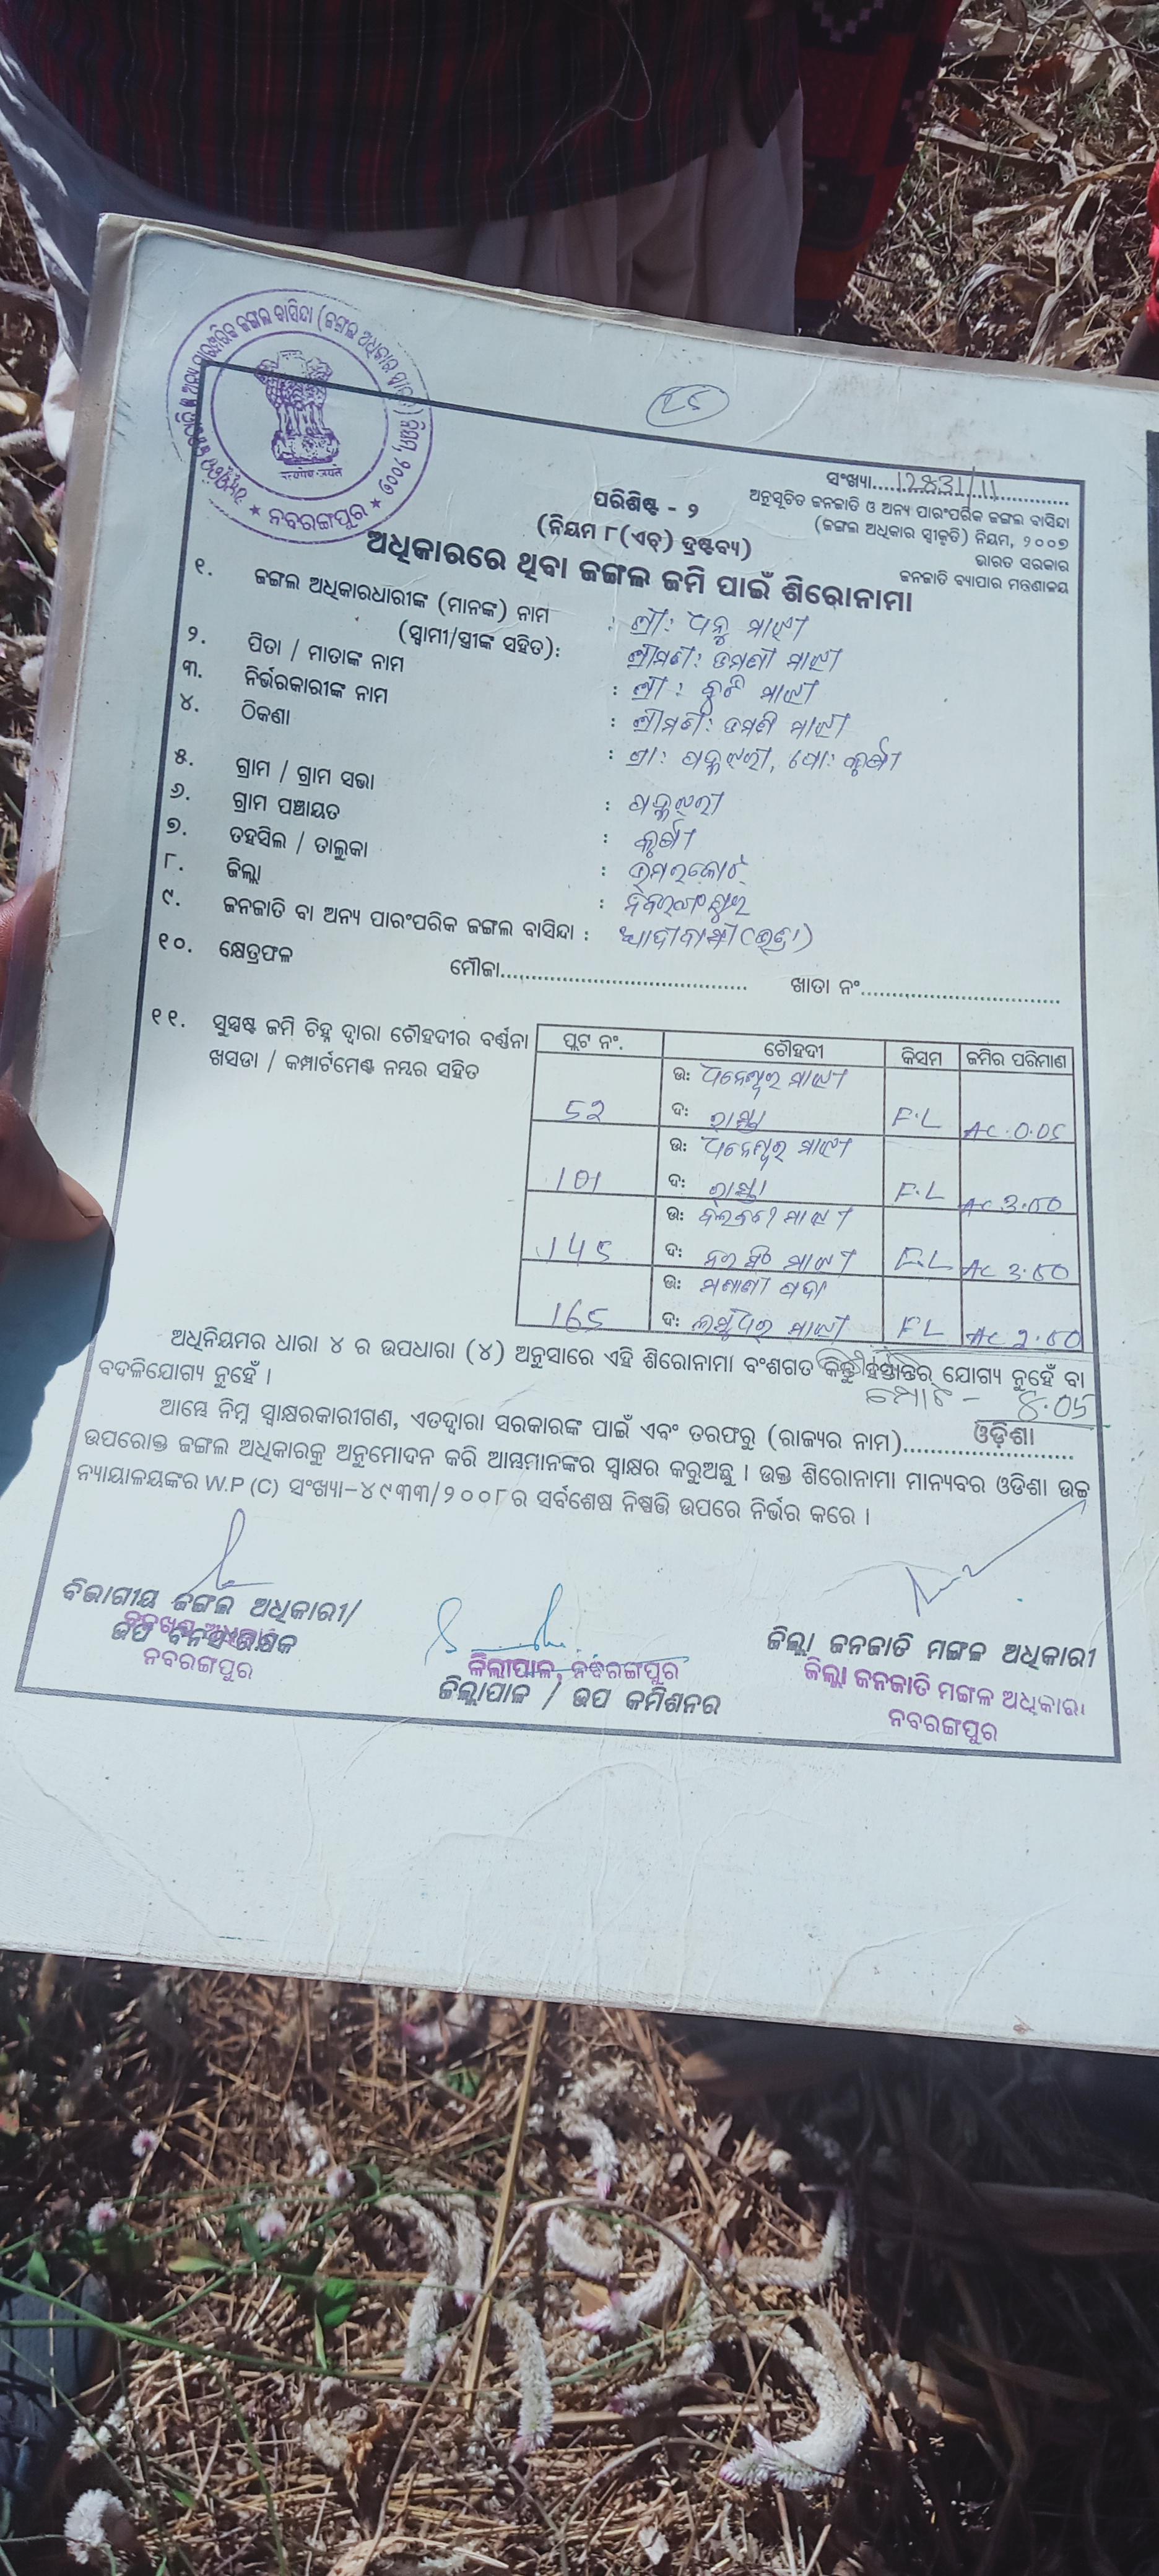 ନବରଙ୍ଗପୁର
25
ସଂଖ୍ୟା....12831/11....
ପରିଶିଷ୍ଟ - ୨
ଅନୁସୂଚିତ ଜନଜାତି ଓ ଅନ୍ୟ ପାରଂପରିକ ଜଙ୍ଗଲ ବାସିନ୍ଦା
(ନିୟମ ୮(ଏଚ୍) ଦ୍ରଷ୍ଟବ୍ୟ)
(ଜଙ୍ଗଲ ଅଧିକାର ସ୍ୱୀକୃତି) ନିୟମ, ୨୦୦୭
ଭାରତ ସରକାର
ଜନଜାତି ବ୍ୟାପାର ମନ୍ତ୍ରଣାଳୟ
ଅଧିକାରରେ ଥିବା ଜଙ୍ଗଲ ଜମି ପାଇଁ ଶିରୋନାମା
୧. ଜଙ୍ଗଲ ଅଧିକାରଧାରୀଙ୍କ (ମାନଙ୍କ) ନାମ : ଶ୍ରୀ: ଧନୁ ମାଝୀ
(ସ୍ୱାମୀ/ସ୍ତ୍ରୀଙ୍କ ସହିତ): ଶ୍ରୀମତୀ: ଡମଣୀ ମାଝୀ
୨. ପିତା / ମାତାଙ୍କ ନାମ : ଶ୍ରୀ: ମାଝୀ
୩. ନିର୍ଭରକାରୀଙ୍କ ନାମ : ଶ୍ରୀମତୀ: ଡମଣି ମାଝୀ
୪. ଠିକଣା : ଗ୍ରା: ପୋ:
୫. ଗ୍ରାମ / ଗ୍ରାମ ସଭା :
୬. ଗ୍ରାମ ପଞ୍ଚାୟତ :
୭. ତହସିଲ / ତାଲୁକା : ଉମରକୋଟ
୮. ଜିଲ୍ଲା : ନବରଙ୍ଗପୁର
୯. ଜନଜାତି ବା ଅନ୍ୟ ପାରଂପରିକ ଜଙ୍ଗଲ ବାସିନ୍ଦା : ଆଦୀବାସୀ
୧୦. କ୍ଷେତ୍ରଫଳ ମୌଜା.................... ଖାତା ନଂ....................
୧୧. ସୁସ୍ପଷ୍ଟ ଜମି ଚିହ୍ନ ଦ୍ୱାରା ଚୌହଦୀର ବର୍ଣ୍ଣନା
ଖସଡା / କମ୍ପାର୍ଟମେଣ୍ଟ ନମ୍ବର ସହିତ
ପ୍ଲଟ ନଂ. ଚୌହଦୀ କିସମ ଜମିର ପରିମାଣ
ଉ: ଧନେଶ୍ୱର ମାଝୀ
52 ଦ: ରାସ୍ତା F.L AC 0.05
ଉ: ଧନେଶ୍ୱର ମାଝୀ
101 ଦ: ରାସ୍ତା F.L AC 3.50
ଉ: ମାଝୀ
145 ଦ: ମାଝୀ F.L AC
ଉ: ମଶାଣୀ ପଦା
165 ଦ: ମାଝୀ F.L AC
ଅଧିନିୟମର ଧାରା ୪ ର ଉପଧାରା (୪) ଅନୁସାରେ ଏହି ଶିରୋନାମା ବଂଶଗତ କିନ୍ତୁ ହସ୍ତାନ୍ତର ଯୋଗ୍ୟ ନୁହେଁ ବା
ବଦଳିଯୋଗ୍ୟ ନୁହେଁ ।
ମୋଟ - ୪.05
ଆମ୍ଭେ ନିମ୍ନ ସ୍ୱାକ୍ଷରକାରୀଗଣ, ଏତଦ୍ୱାରା ସରକାରଙ୍କ ପାଇଁ ଏବଂ ତରଫରୁ (ରାଜ୍ୟର ନାମ)........ଓଡ଼ିଶା........
ଉପରୋକ୍ତ ଜଙ୍ଗଲ ଅଧିକାରକୁ ଅନୁମୋଦନ କରି ଆମ୍ଭମାନଙ୍କର ସ୍ୱାକ୍ଷର କରୁଅଛୁ । ଉକ୍ତ ଶିରୋନାମା ମାନ୍ୟବର ଓଡିଶା ଉଚ୍ଚ
ନ୍ୟାୟାଳୟଙ୍କର W.P (C) ସଂଖ୍ୟା-୪୯୩୩/୨୦୦୮ର ସର୍ବଶେଷ ନିଷ୍ପତ୍ତି ଉପରେ ନିର୍ଭର କରେ ।
ବିଭାଗୀୟ ଜଙ୍ଗଲ ଅଧିକାରୀ/
ଉପ ବନସଂରକ୍ଷକ
ନବରଙ୍ଗପୁର
ଜିଲ୍ଲାପାଳ, ନବରଙ୍ଗପୁର
ଜିଲ୍ଲାପାଳ / ଉପ କମିଶନର
ଜିଲ୍ଲା ଜନଜାତି ମଙ୍ଗଳ ଅଧିକାରୀ
ଜିଲ୍ଲା ଜନଜାତି ମଙ୍ଗଳ ଅଧିକାରୀ
ନବରଙ୍ଗପୁର